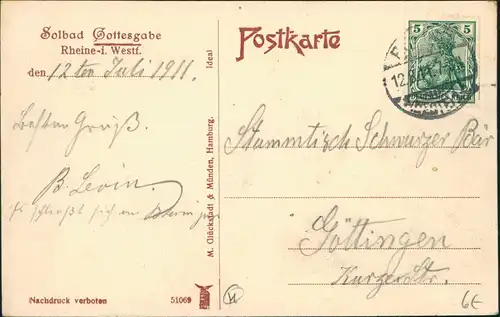 Solbad Gottesgabe
Rheine i. Westf.
den 12ten Juli 1911.
Besten Gruß.
B. Levin.
schließt sich an
Nachdruck verboten
51069
Ideal
M. Glückstadt & Münden, Hamburg.
Postkarte
5 5
Stammtisch Schwarzer Bär
Göttingen
Kurzestr.
6€